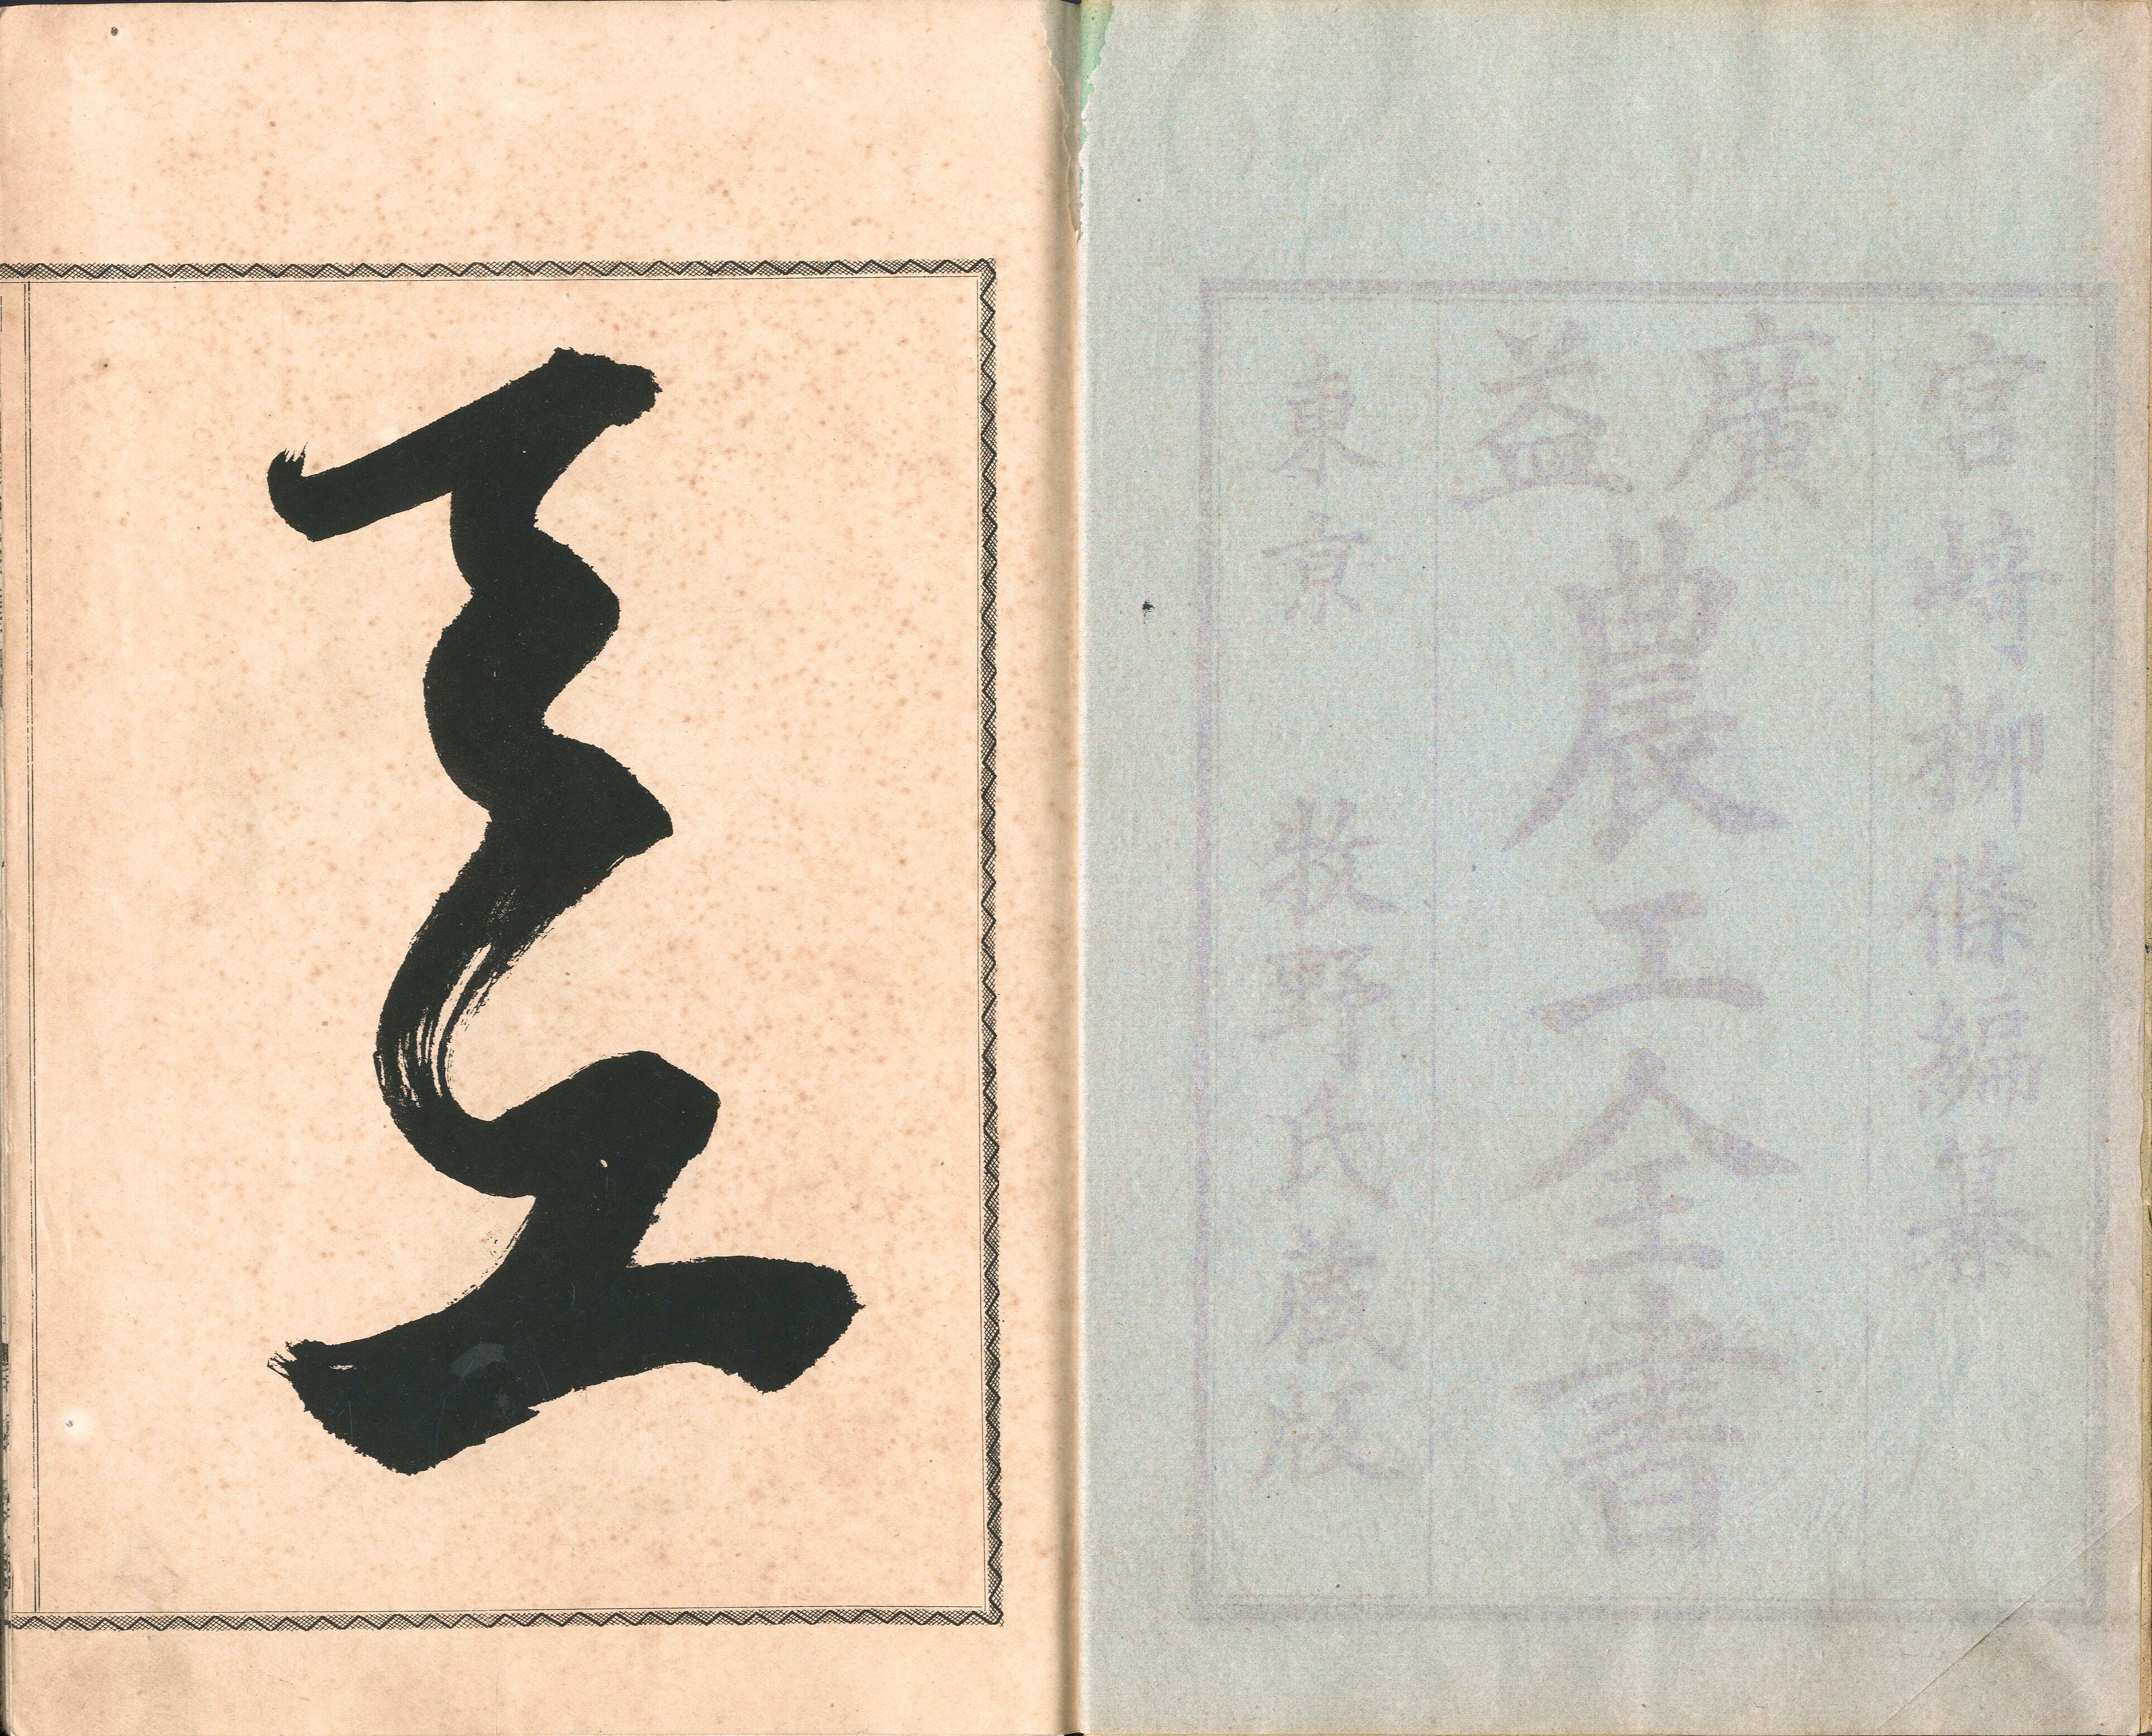 宮崎柳條編纂
廣益
農工全書
東京 牧野氏藏版